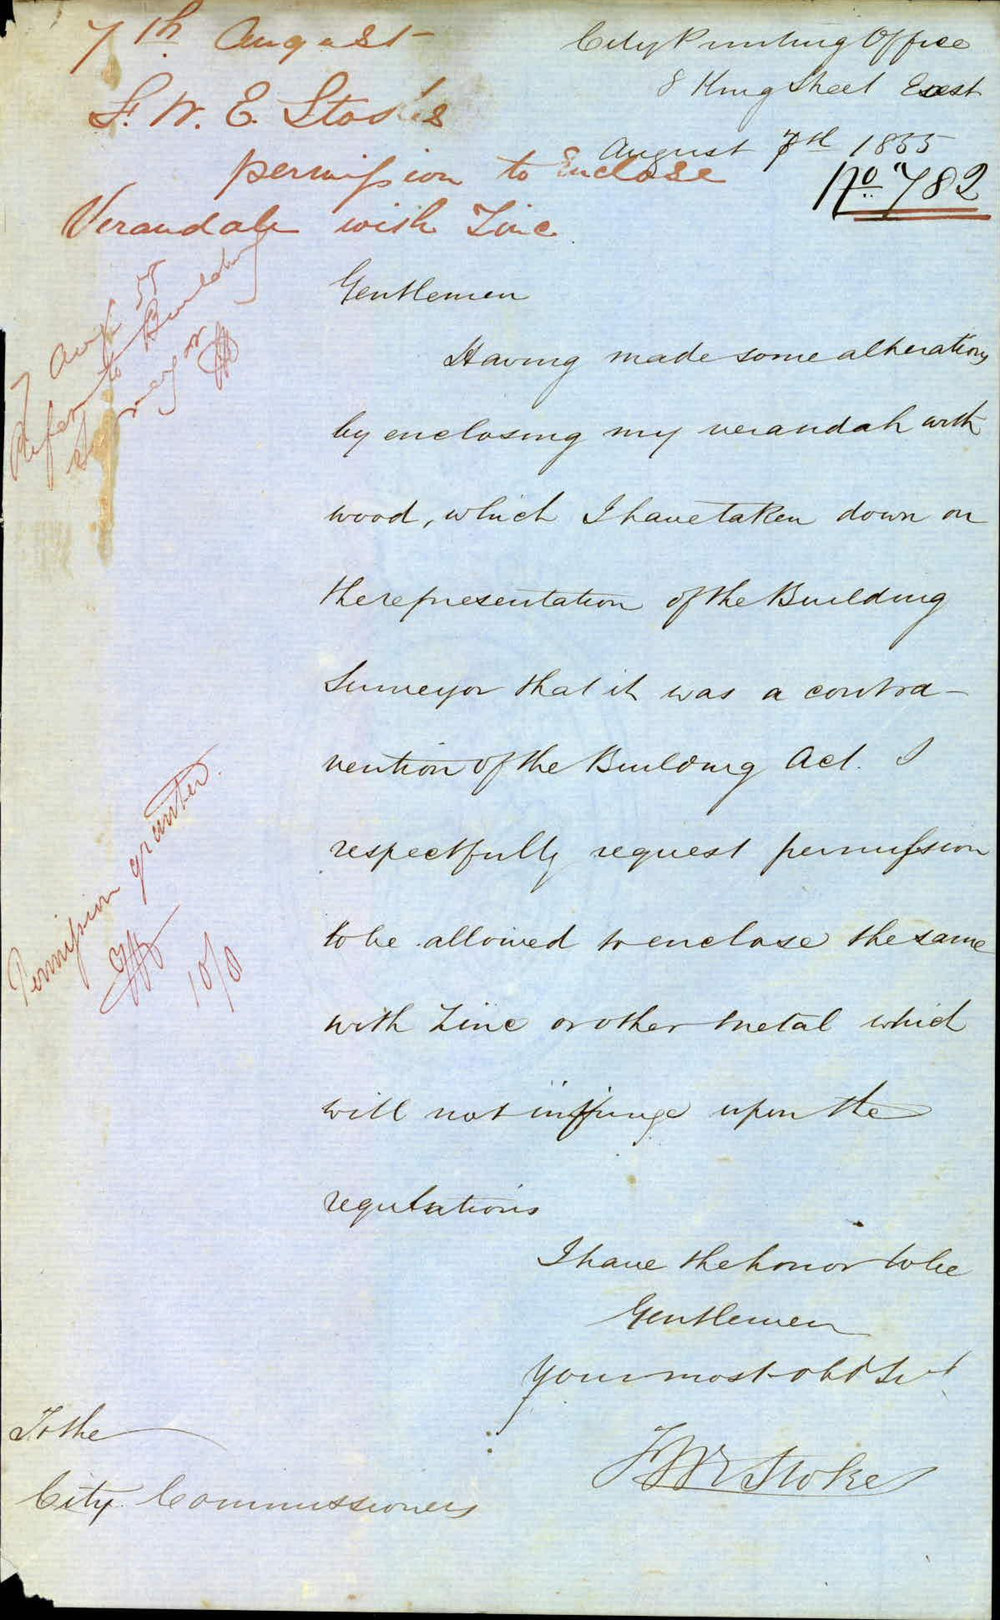 7th August
F. W. E. Stokes
permission to Enclose
Verandah with Zinc
City Printing Office
8 King Street East
August 7th 1855
No 782
7 Aug 55
Refer to Building
Surveyor
Gentlemen
Having made some alterations
by enclosing my verandah with
wood, which I have taken down on
the representation of the Building
Surveyor that it was a contra-
vention of the Building Act. I
respectfully request permission
to be allowed to enclose the same
with Zinc or other metal which
will not infringe upon the
regulations
Permission granted.
10/8
I have the honor to be
Gentlemen
Your most obdt Svt
F W E Stokes
To the
City Commissioners